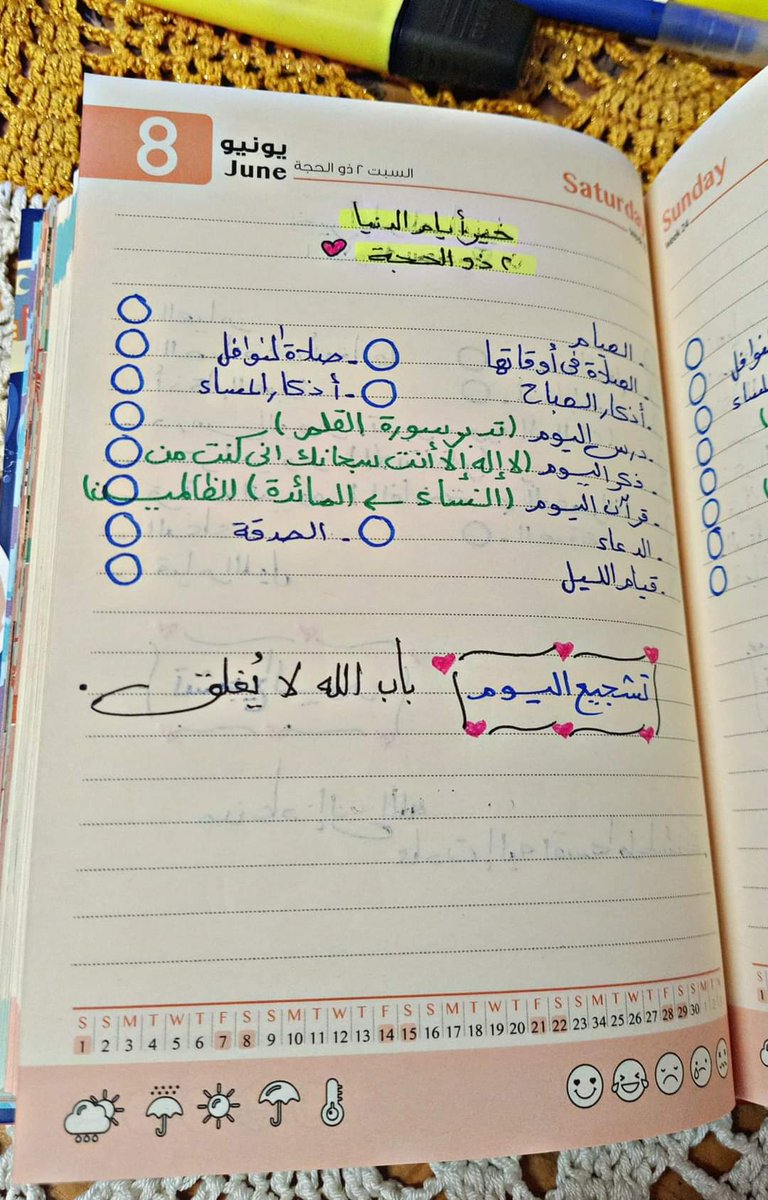 8
يونيو
June
السبت ٢ ذو الحجة
Saturday
خير أيام الدنيا
٢ ذو الحجة
. الصيام
. الصلاة فى أوقاتها - صلاة النوافل
. أذكار الصباح - أذكار المساء
. درس اليوم (تدبر سورة القلم)
. ذكر اليوم (لا إله إلا أنت سبحانك انى كنت من الظالمين)
. قرآن اليوم (النساء ← المائدة)
. الدعاء - الصدقة
. قيام الليل
تشجيع اليوم
باب الله لا يُغلق.
S S M T W T F S S M T W T F S S M T W T F S S M T W T F S S M T
1 2 3 4 5 6 7 8 9 10 11 12 13 14 15 16 17 18 19 20 21 22 23 34 25 26 27 28 29 30 1 2
Sunday
WEEK 24
النوافل
المساء